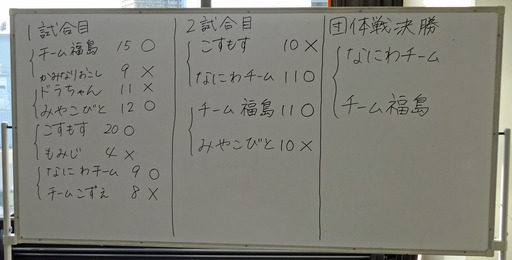 1試合目
チーム福島 15 ○
かみなりおこし 9 ×
ドラちゃん 11 ×
みやこびと 12 ○
こすもす 20 ○
もみじ 4 ×
なにわチーム 9 ○
チームこずえ 8 ×
2試合目
こすもす 10 ×
なにわチーム 11 ○
チーム福島 11 ○
みやこびと 10 ×
団体戦決勝
なにわチーム
チーム福島